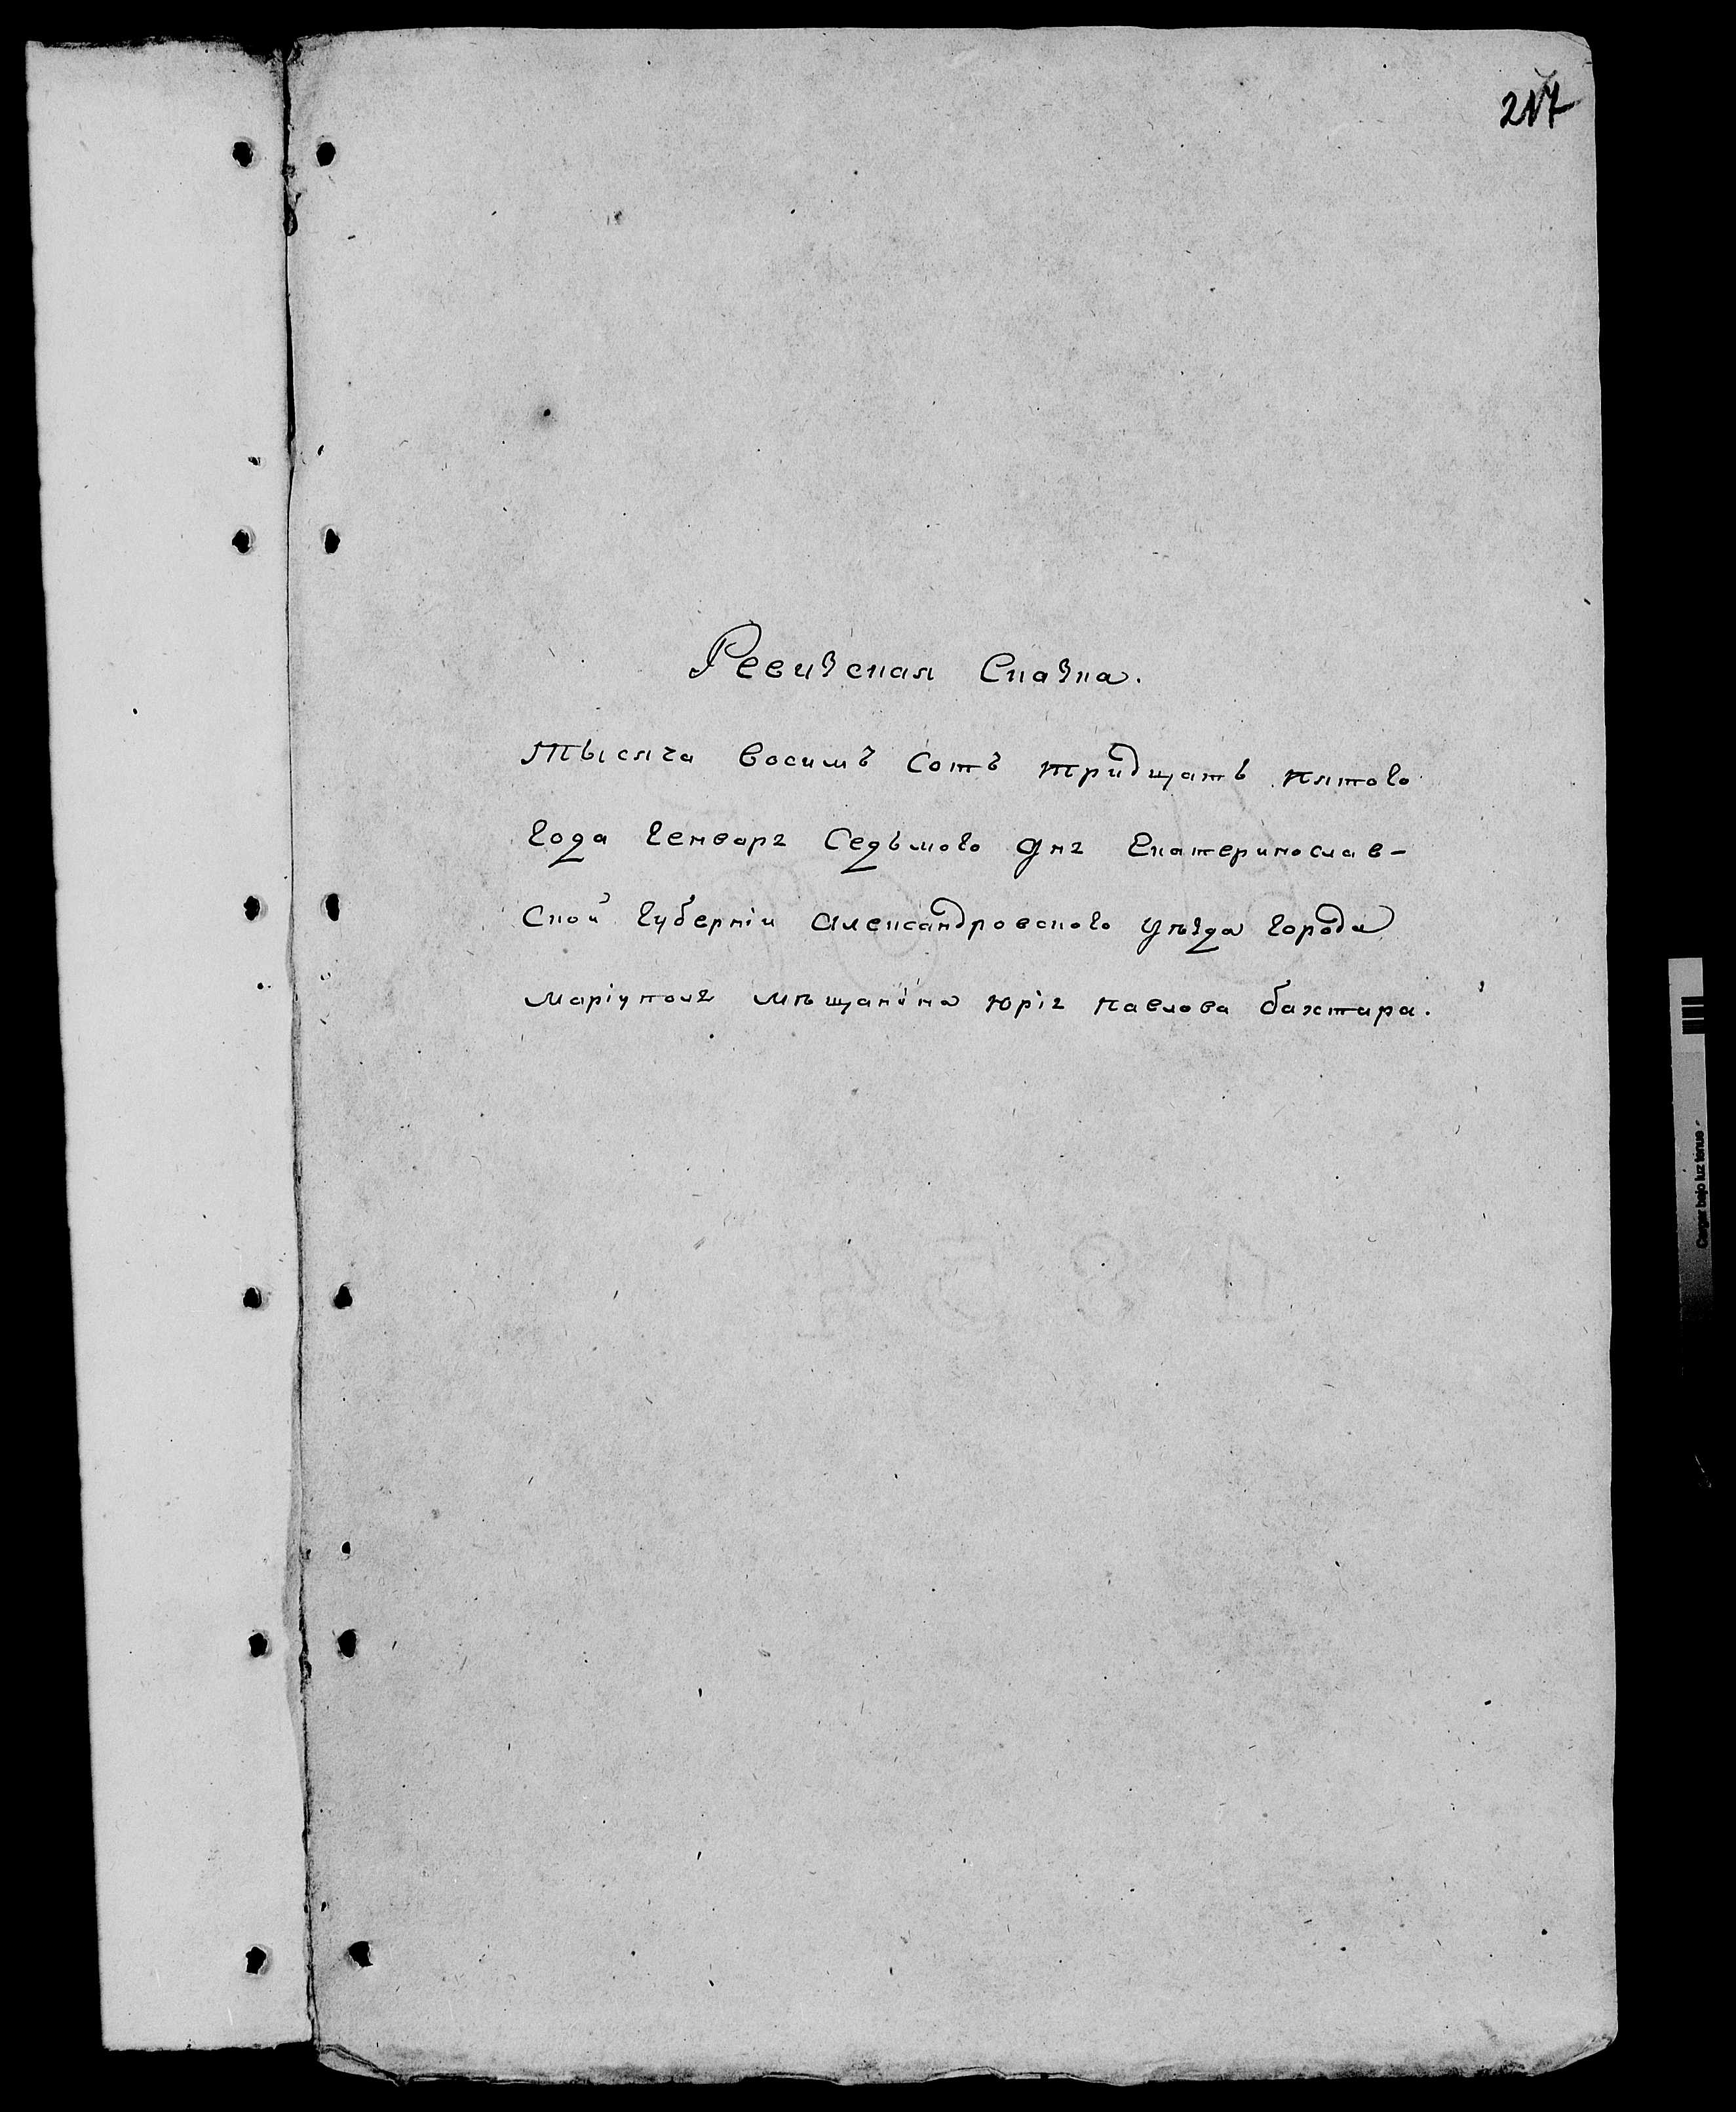 217
Ревизская Сказка.
Тысяча восимъ Сотъ тридцать пятого
года генваря Седьмого дня Екатеринослав-
Ской губерніи Александровского уѣзда города
маріуполя мѣщанина юрія павлова бахтара.
Cargar bajo luz tenue